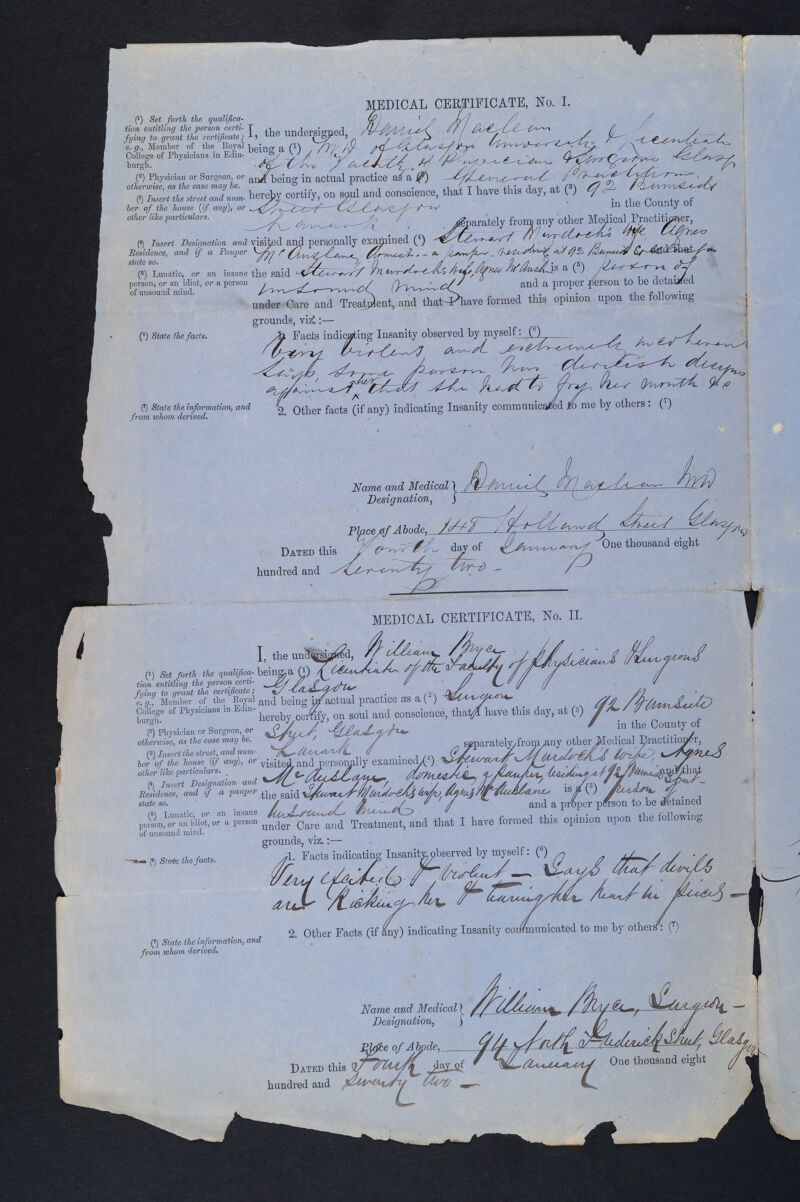 MEDICAL CERTIFICATE, No. I.
(¹) Set forth the qualifica-
tion entitling the person certi-
fying to grant the certificate;
e. g., Member of the Royal
College of Physicians in Edin-
burgh.
(²) Physician or Surgeon, or
otherwise, as the case may be.
(³) Insert the street and num-
ber of the house (if any), or
other like particulars.
(⁴) Insert Designation and
Residence, and if a Pauper
state so.
(⁵) Lunatic, or an insane
person, or an idiot, or a person
of unsound mind.
(⁶) State the facts.
(⁷) State the information, and
from whom derived.
I, the undersigned, Daniel Maclean
being a (¹) MD of Glasgow University & Licentiate
of the Faculty of Physicians & Surgeons Glasg
and being in actual practice as a (²) General Practitioner
hereby certify, on soul and conscience, that I have this day, at (³) 92 Burnside
Street Glasgow in the County of
Lanark separately from any other Medical Practitioner,
visited and personally examined (⁴) Stewart Murdoch's wife Agnes
McAuslane, domestic - a pauper - residing at 92 Burnside St and that
the said Stewart Murdoch's wife, Agnes McAuslane is a (⁵) person of
unsound mind and a proper person to be detained
under Care and Treatment, and that I have formed this opinion upon the following
grounds, viz.:—
1. Facts indicating Insanity observed by myself: (⁶)
Very violent and extremely incoherent
Says some person has devilish designs
against her that she had to her mouth &c
2. Other facts (if any) indicating Insanity communicated to me by others: (⁷)
Name and Medical Designation, Daniel Maclean MD
Place of Abode, 148 Holland Street Glasgow
DATED this Fourth day of January One thousand eight
hundred and seventy two -
MEDICAL CERTIFICATE, No. II.
(¹) Set forth the qualifica-
tion entitling the person certi-
fying to grant the certificate;
e. g., Member of the Royal
College of Physicians in Edin-
burgh.
(²) Physician or Surgeon, or
otherwise, as the case may be.
(³) Insert the street, and num-
ber of the house (if any), or
other like particulars.
(⁴) Insert Designation and
Residence, and if a pauper
state so.
(⁵) Lunatic, or an insane
person, or an idiot, or a person
of unsound mind.
(⁶) State the facts.
(⁷) State the information, and
from whom derived.
I, the undersigned, William Bryce
being a (¹) Licentiate of the Faculty of Physicians & Surgeons
Glasgow and being in actual practice as a (²) Surgeon
hereby certify, on soul and conscience, that I have this day, at (³) 92 Burnside
Street, Glasgow in the County of
Lanark separately from any other Medical Practitioner,
visited and personally examined (⁴) Stewart Murdoch's wife, Agnes
McAuslane, domestic, a pauper, residing at 92 Burnside Street - and that
the said Stewart Murdoch's wife, Agnes McAuslane is a (⁵) person of
unsound mind and a proper person to be detained
under Care and Treatment, and that I have formed this opinion upon the following
grounds, viz.:—
1. Facts indicating Insanity observed by myself: (⁶)
Very excited & violent - Says that devils
are kicking her & tearing her heart in pieces -
2. Other Facts (if any) indicating Insanity communicated to me by others: (⁷)
Name and Medical Designation, William Bryce, Surgeon -
Place of Abode, 94 North Frederick Street, Glasgow
DATED this Fourth day of January One thousand eight
hundred and seventy two -